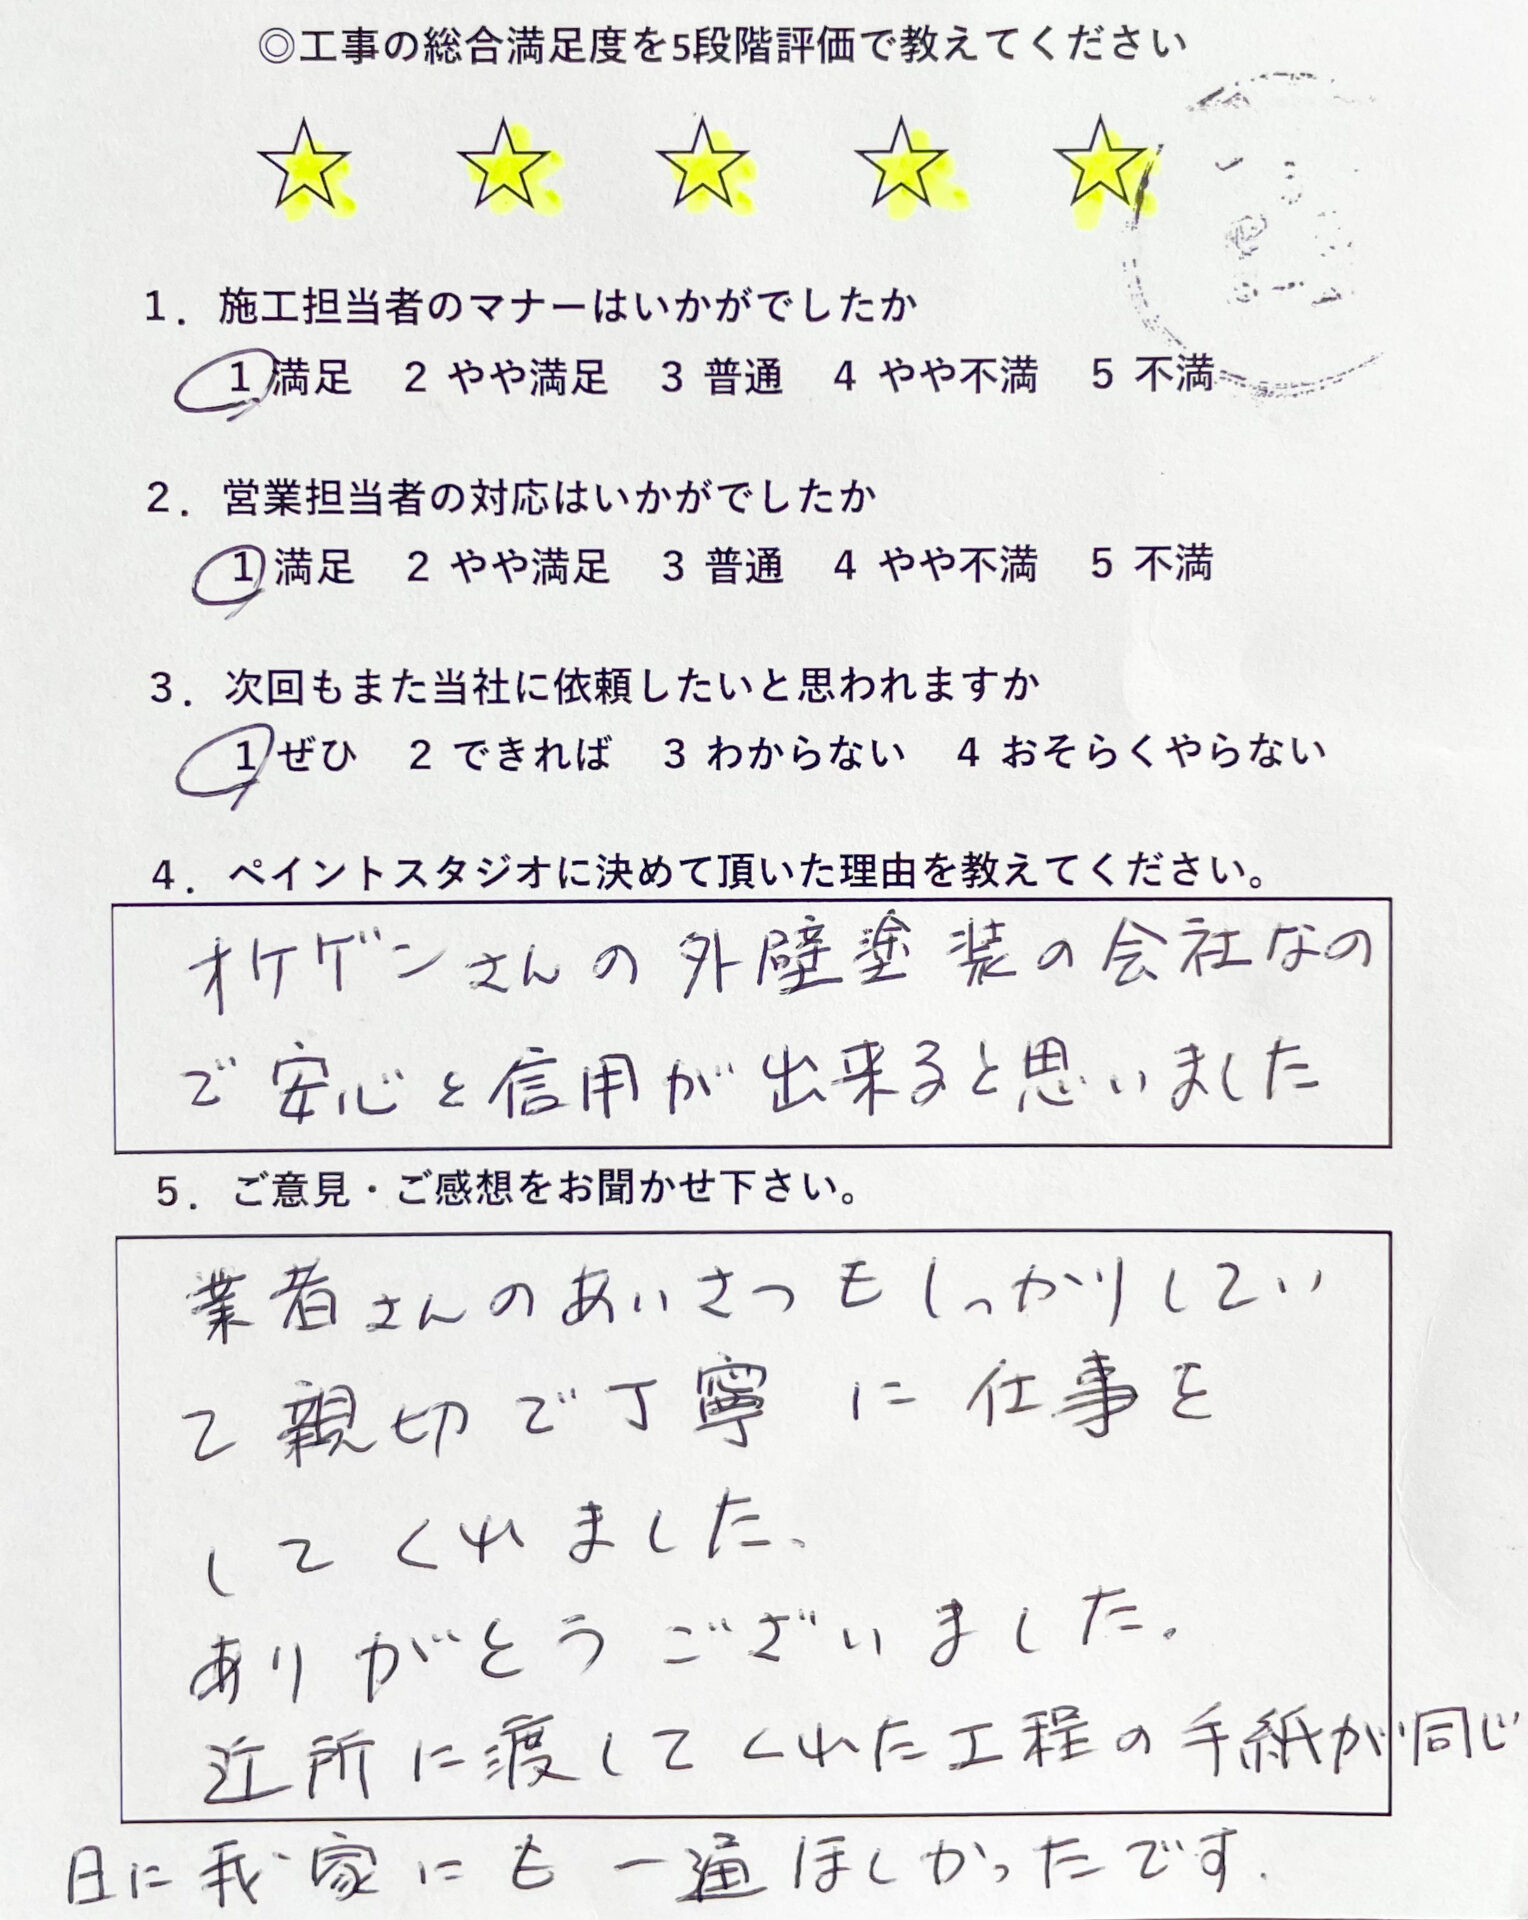 ◎工事の総合満足度を5段階評価で教えてください
1．施工担当者のマナーはいかがでしたか
1 満足 2 やや満足 3 普通 4 やや不満 5 不満
2．営業担当者の対応はいかがでしたか
1 満足 2 やや満足 3 普通 4 やや不満 5 不満
3．次回もまた当社に依頼したいと思われますか
1 ぜひ 2 できれば 3 わからない 4 おそらくやらない
4．ペイントスタジオに決めて頂いた理由を教えてください。
オケゲンさんの外壁塗装の会社なの
で安心と信用が出来ると思いました
5．ご意見・ご感想をお聞かせ下さい。
業者さんのあいさつもしっかりしてい
て親切で丁寧に仕事を
してくれました、
ありがとうございました。
近所に渡してくれた工程の手紙が同じ
日に我家にも一通ほしかったです.